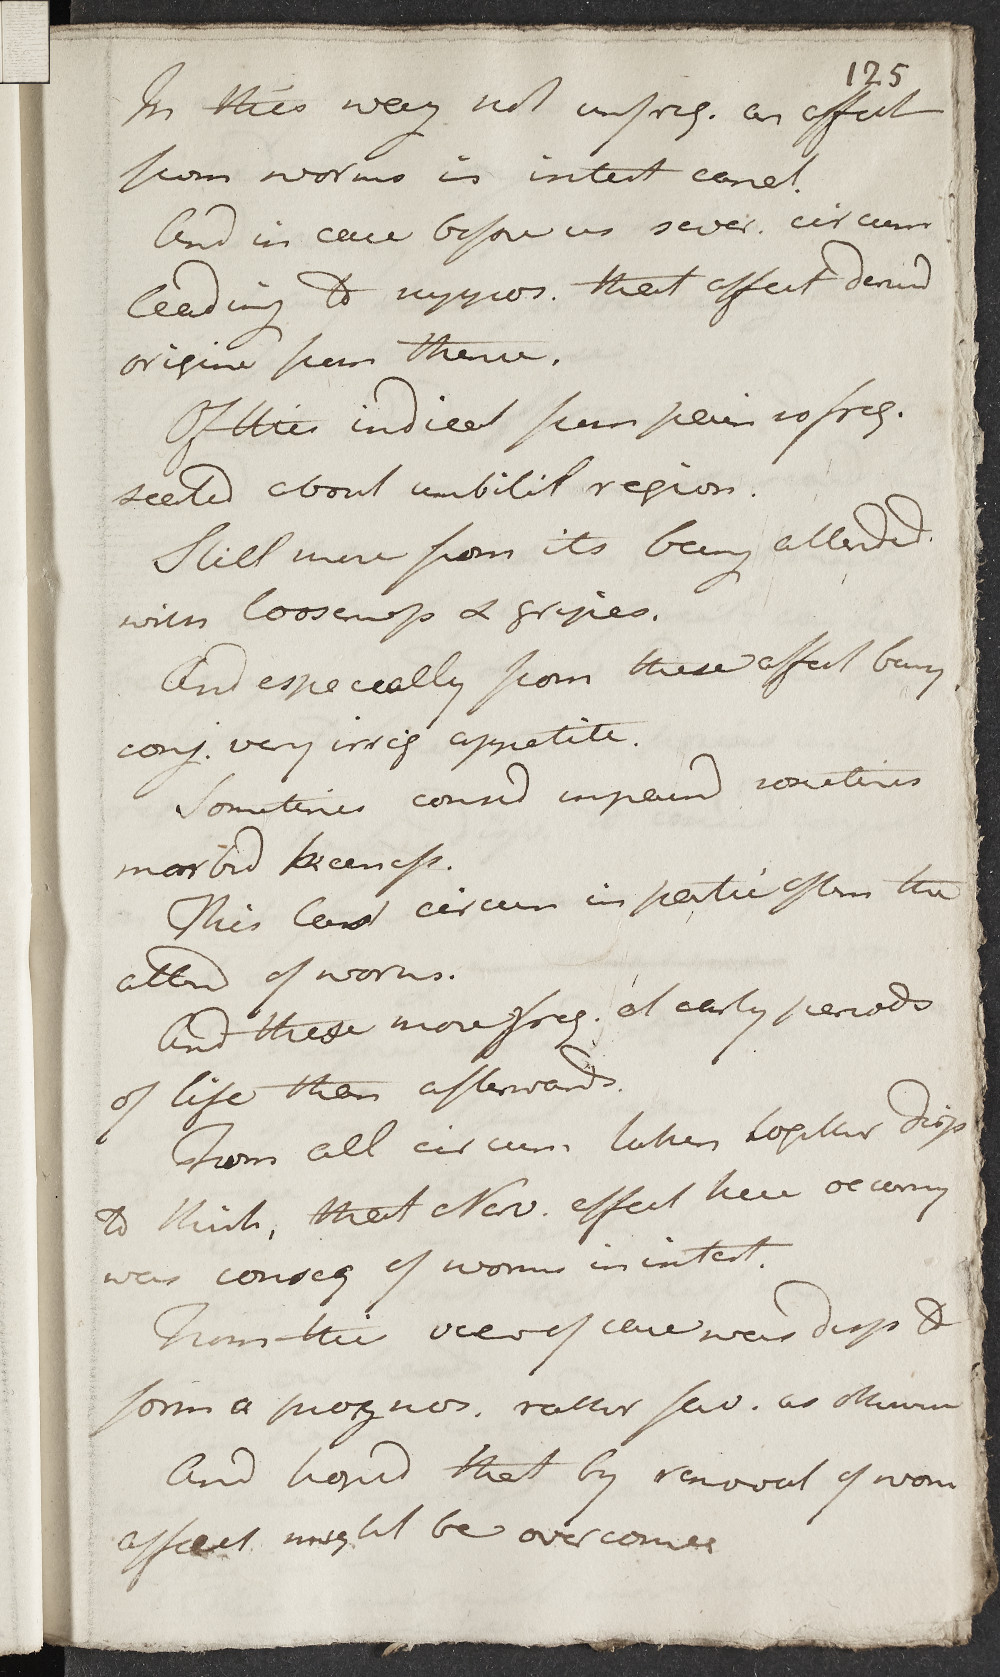 125
In this way not unfreq. an affect
from worms in intest canal.
And in case before us sever. circum
leading to suppos. that affect derived
origine from thence.
Of this indicat from pain so freq.
seated about umbilil region.
Still more from its being attended.
with looseness & gripes.
And especially from these affect being
conj. very irreg appetite.
Sometimes consid impaired sometimes
morbid keenness.
This last circum in partic often the
attend of worms.
And these more freq. at early periods
of life than afterwards.
From all circum taken together disp
to think, that Nerv. affect here occurring
was conseq of worms in intest.
From this view of case was disp to
form a prognos. rather fav. as otherwise
And hoped that by removal of worm
affect might be overcome